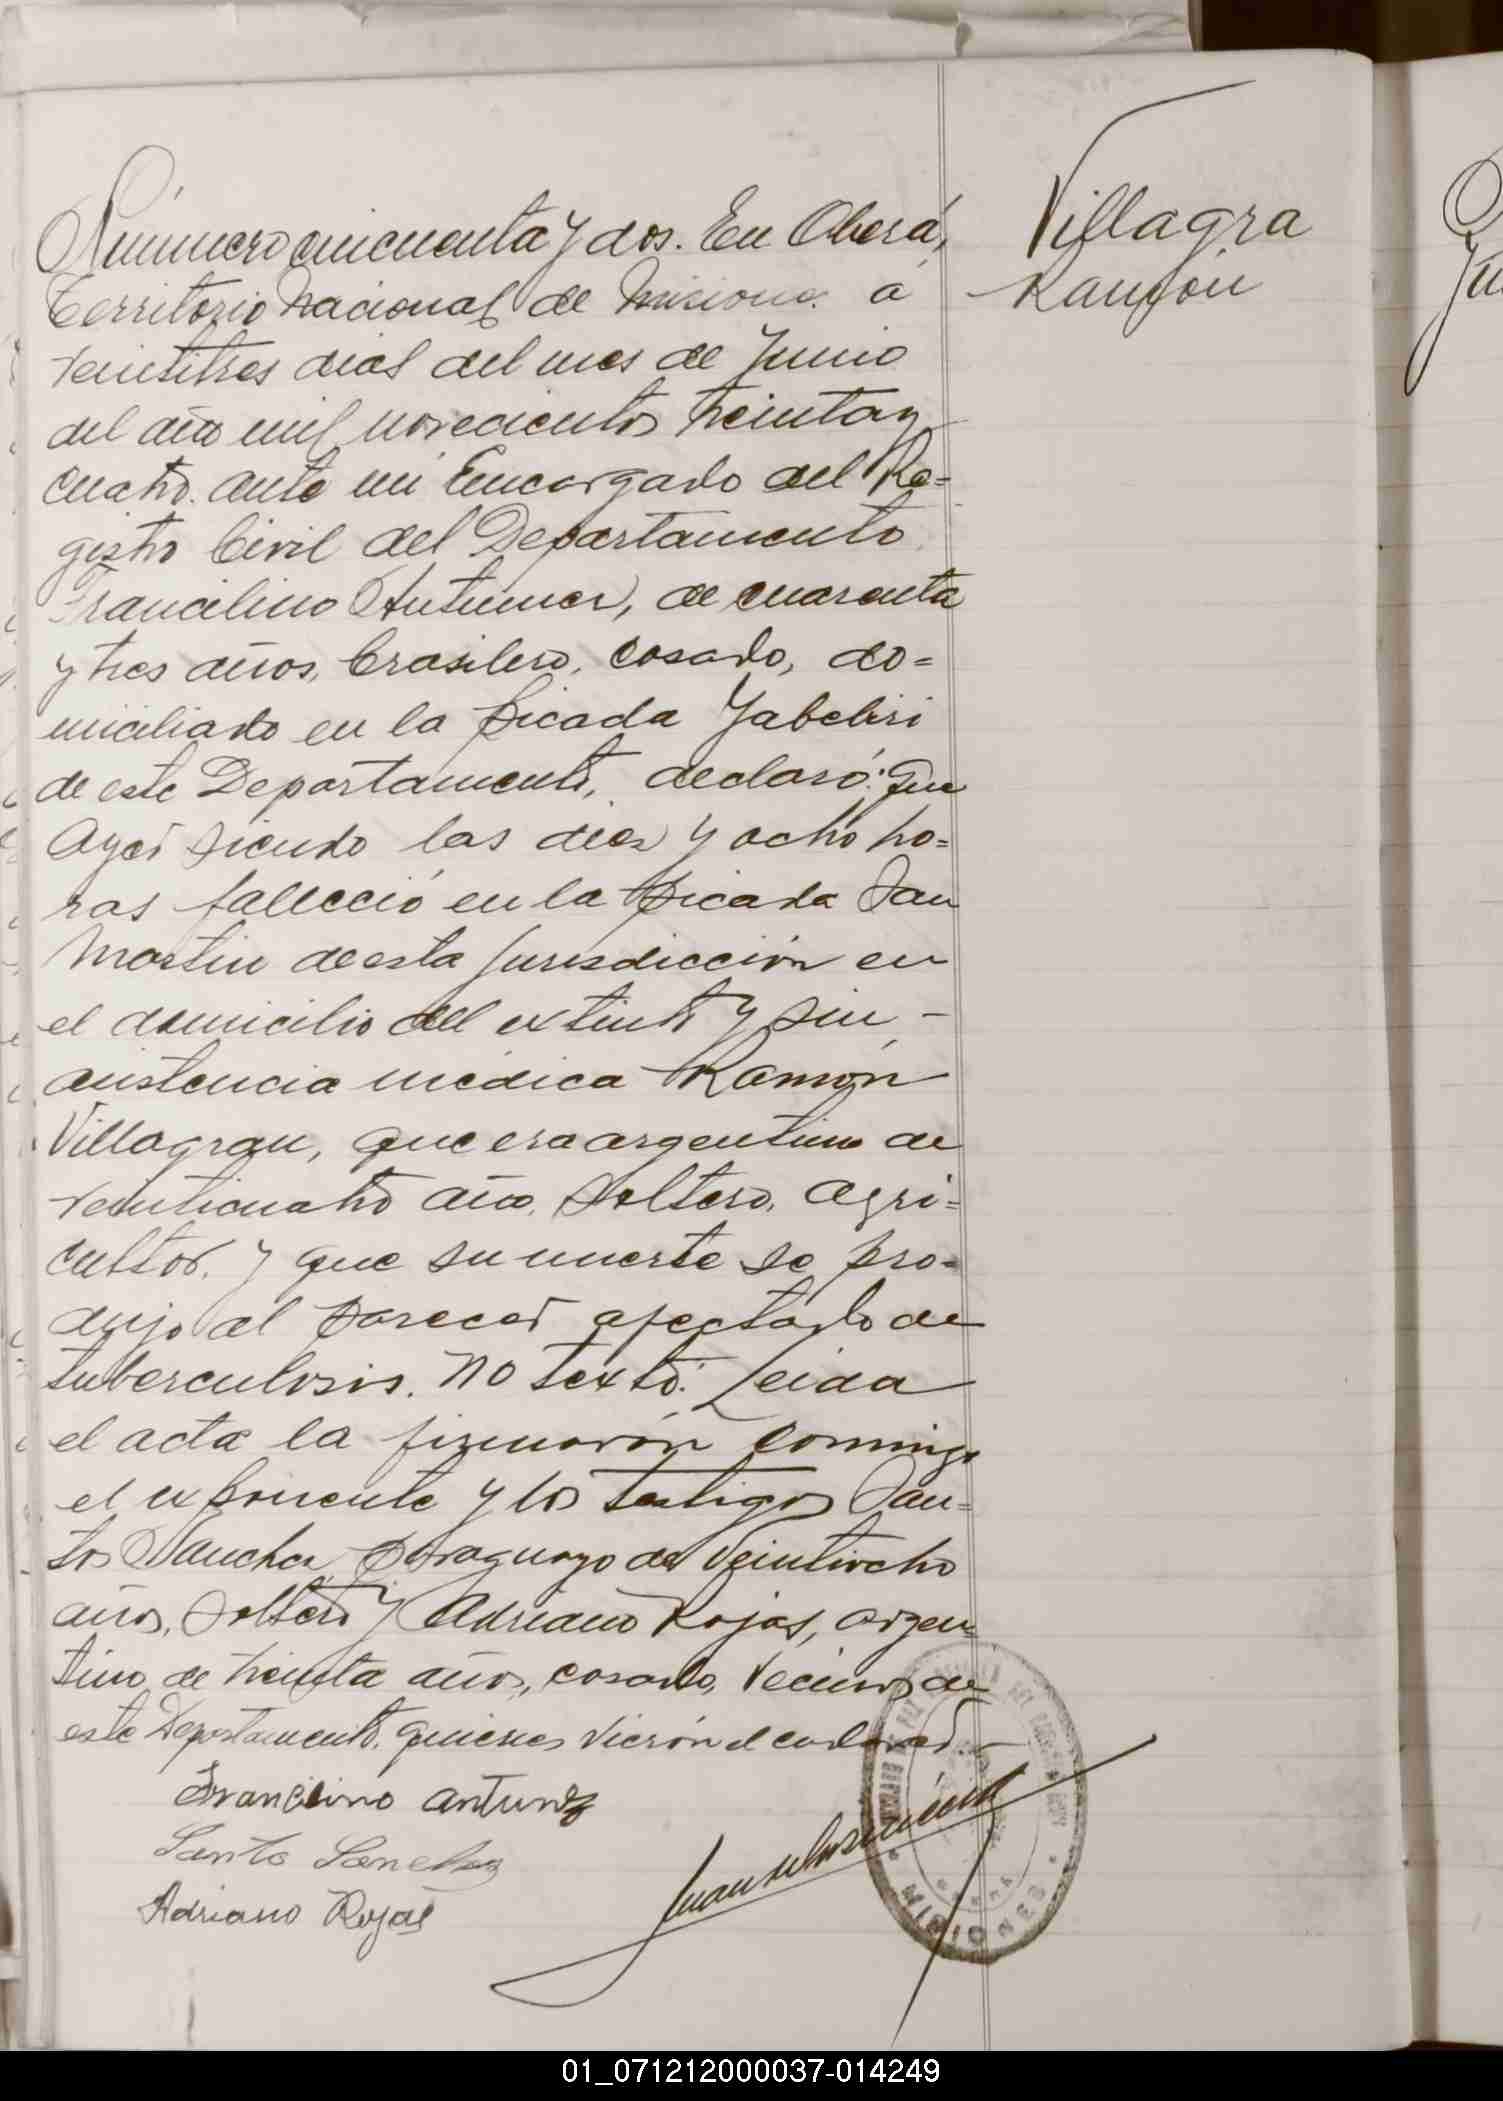 Número cincuenta y dos. En Oberá,
Territorio Nacional de Misiones a
veintitres dias del mes de Junio
del año mil novecientos treinta y
cuatro. ante mi Encargado del Re=
gistro Civil del Departamento
Francilino Antunez, de cuarenta
y tres años, brasilero, casado, do=
miciliado en la picada Yabebiri
de este Departamento, declaró: Que
ayer siendo las diez y ocho ho=
ras falleció en la picada San
Martin de esta jurisdicción en
el domicilio del extinto y sin -
asistencia médica Ramón
Villagran, que era argentino de
veinticuatro años, soltero, agri=
cultor, y que su muerte se pro=
dujo al parecer afectado de
tuberculosis. no testó. Leida
el acta la firmarón conmigo
el exponente y los testigos San=
tos Sanchez, paraguayo de veintiocho
años, soltero y Adriano Rojas, argen=
tino, de treinta años, casado, vecinos de
este Departamento. quienes vierón el cadaver -
Francilino Antunez
Santo Sanchez
Adriano Rojas
Villagra
Ramón
MISIONES
01_071212000037-014249